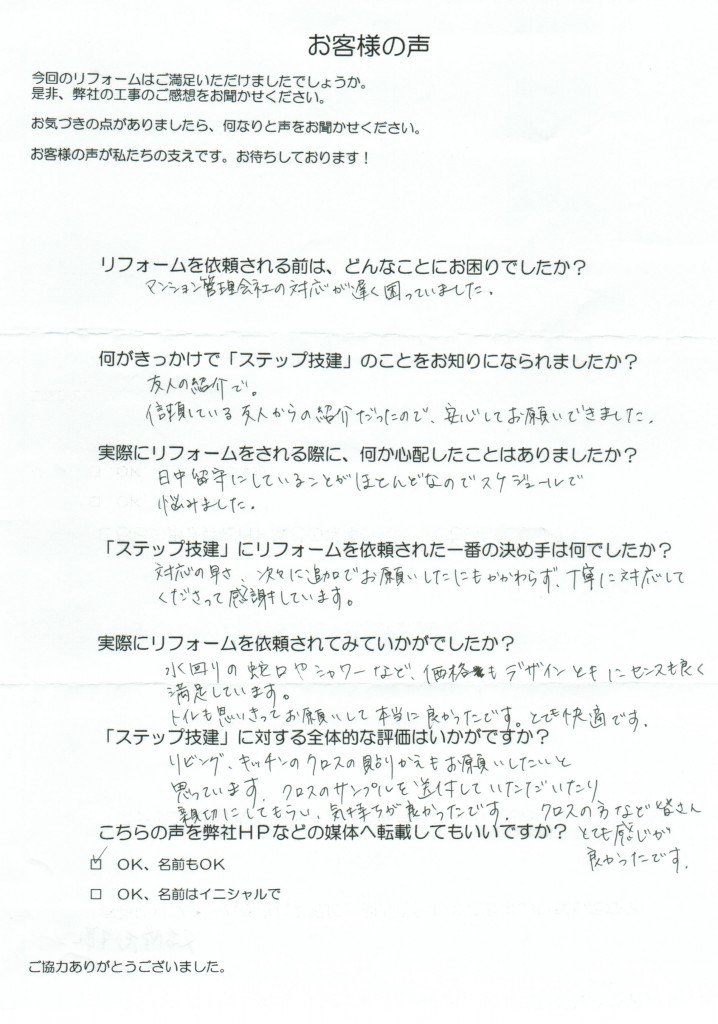 お客様の声
今回のリフォームはご満足いただけましたでしょうか。
是非、弊社の工事のご感想をお聞かせください。
お気づきの点がありましたら、何なりと声をお聞かせください。
お客様の声が私たちの支えです。お待ちしております！
リフォームを依頼される前は、どんなことにお困りでしたか？
マンション管理会社の対応が遅く困っていました.
何がきっかけで「ステップ技建」のことをお知りになられましたか？
友人の紹介で。
信頼している友人からの紹介だったので、安心してお願いできました.
実際にリフォームをされる際に、何か心配したことはありましたか？
日中留守にしていることがほとんどなのでスケジュールで
悩みました.
「ステップ技建」にリフォームを依頼された一番の決め手は何でしたか？
対応の早さ、次々に追加でお願いしたにもかかわらず、丁寧に対応して
くださって感謝しています。
実際にリフォームを依頼されてみていかがでしたか？
水回りの蛇口やシャワーなど、価格もデザインともにセンスも良く
満足しています。
トイレも思いきってお願いして本当に良かったです。とても快適です.
「ステップ技建」に対する全体的な評価はいかがですか？
リビング、キッチンのクロスの貼りかえもお願いしたいと
思っています. クロスのサンプルを送付していただいたり
親切にしてもらい、気持ちが良かったです. クロスの方など皆さん
とても感じが
良かったです.
こちらの声を弊社ＨＰなどの媒体へ転載してもいいですか？
☑ OK、名前もOK
□ OK、名前はイニシャルで
ご協力ありがとうございました。